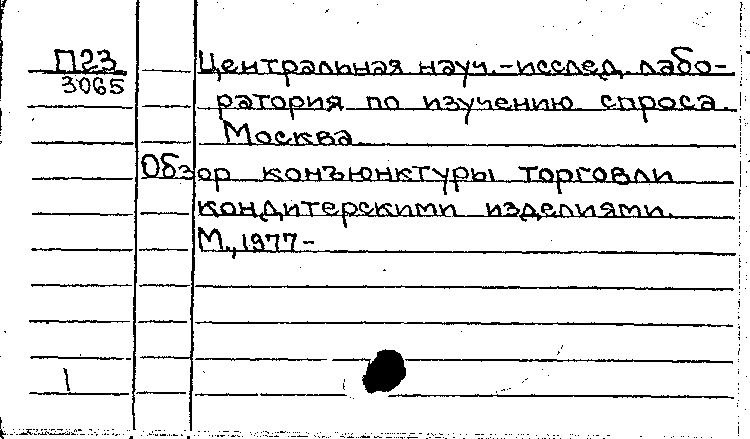 П23
3065
Центральная науч.-исслед. лабо-
ратория по изучению спроса.
Москва
Обзор конъюнктуры торговли
кондитерскими изделиями.
М., 1977-